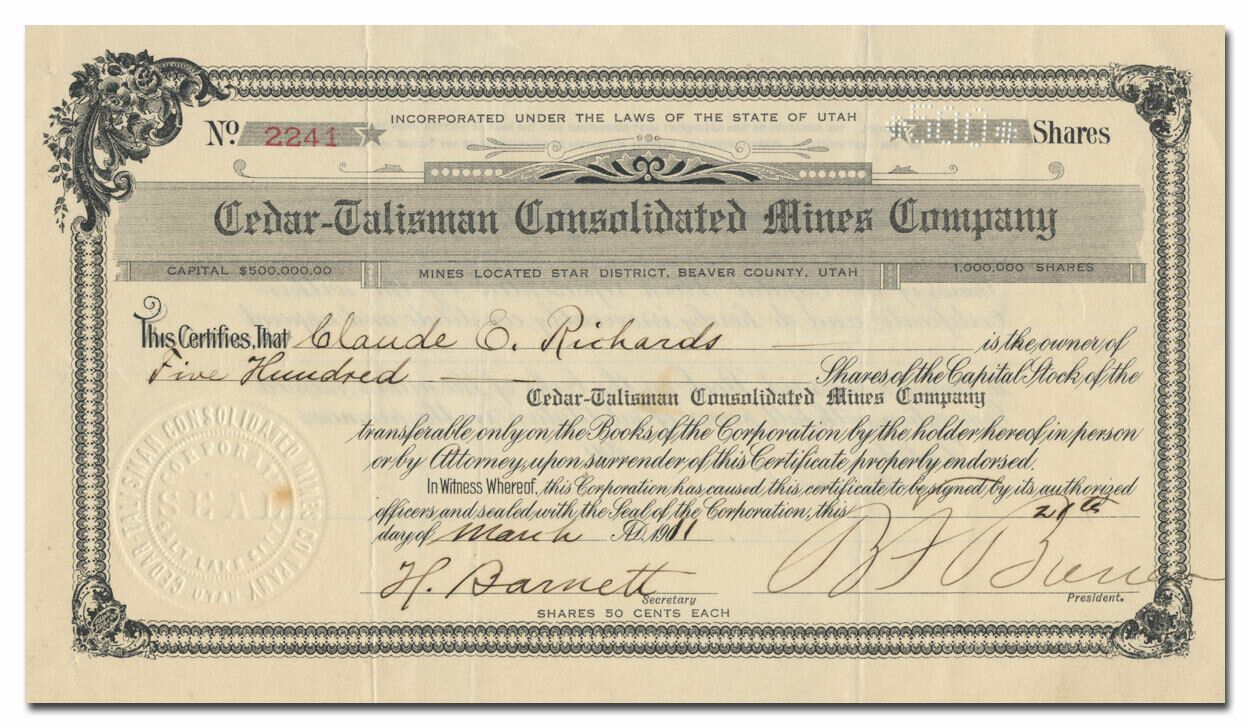 INCORPORATED UNDER THE LAWS OF THE STATE OF UTAH
No. 2241 Shares
Cedar-Talisman Consolidated Mines Company
CAPITAL $500,000,00 MINES LOCATED STAR DISTRICT, BEAVER COUNTY, UTAH 1,000,000 SHARES
This Certifies, That Claude E. Richards is the owner of
Five Hundred Shares of the Capital Stock of the
Cedar-Talisman Consolidated Mines Company
transferable only on the Books of the Corporation by the holder hereof, in person
or by Attorney, upon surrender of this Certificate properly endorsed.
In Witness Whereof, this Corporation has caused this certificate to be signed by its authorized
officers and sealed with the Seal of the Corporation, this
day of March A.D. 1911
H. Barnett
Secretary President.
SHARES 50 CENTS EACH
CEDAR TALISMAN CONSOLIDATED MINES COMPANY
CORPORATE
SEAL
SALT LAKE CITY
UTAH